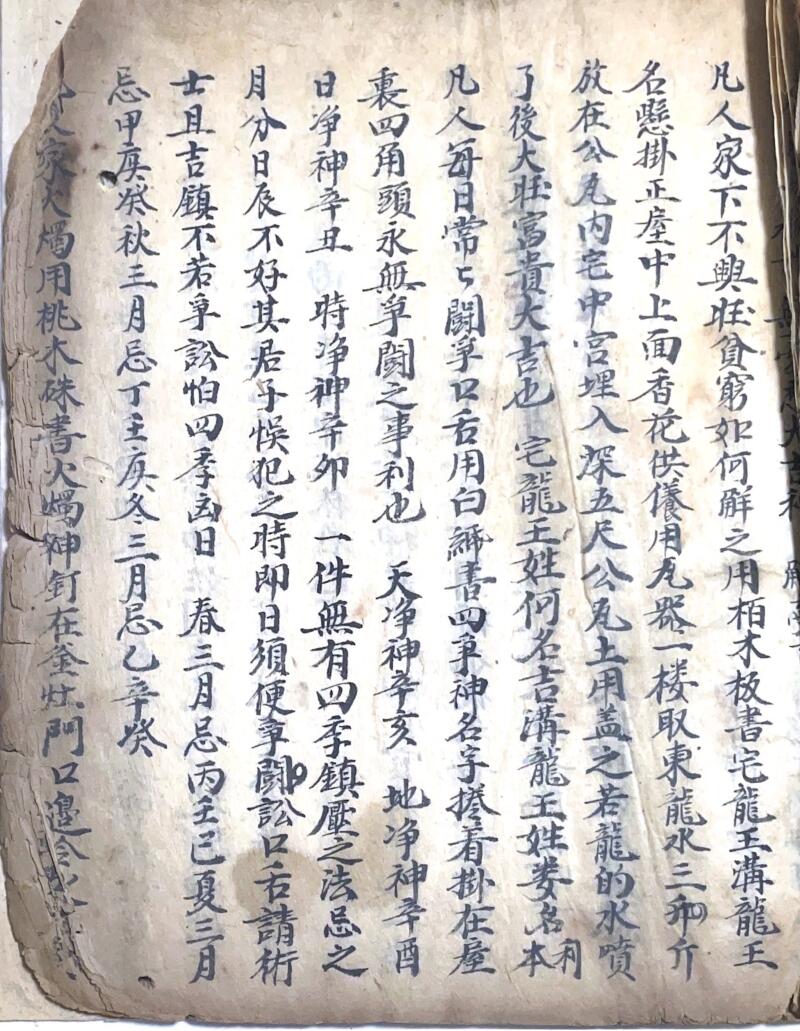 凡人家下不興旺貧窮如何解之用栢木板書宅龍王溝龍王
名懸掛正堂中上面香花供儀用瓦器一楼取東龍水三斤
放在公瓦内宅中宮埋入深五尺公瓦上用盖之若龍的水噴
了後大旺富貴大吉也 宅龍王姓何名吉溝龍王姓娄名本利
凡人每日常々鬪爭口舌用白紙書四爭神名字捲着掛在堂
裏四角頭永無爭鬪之事利也 天净神辛亥 地净神辛酉
日净神辛丑 時净神辛卯 一件無有四季鎮壓之法忌之
月分日辰不好其居子悮犯之時即日須使爭鬪訟口舌請術
士且吉鎮不若爭訟怕四季凶日 春三月忌丙壬已夏三月
忌甲庚癸秋三月忌丁壬庚冬三月忌乙辛癸
人家火燭用桃木硃書火燭神釘在釜灶門口邊